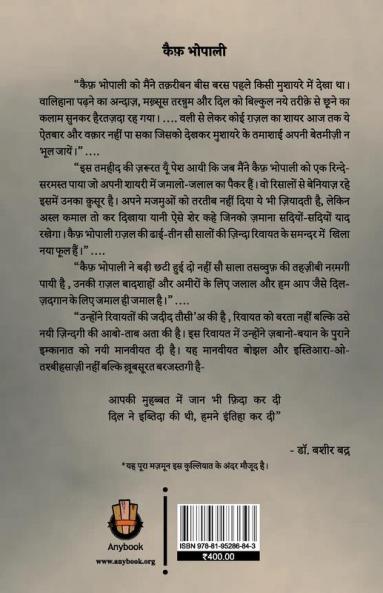 कैफ़ भोपाली
“कैफ़ भोपाली को मैंने तक़रीबन बीस बरस पहले किसी मुशायरे में देखा था।
वालिहाना पढ़ने का अन्दाज़, मख़्सूस तरन्नुम और दिल को बिल्कुल नये तरीक़े से छूने का
कलाम सुनकर हैरतज़दा रह गया। .... वली से लेकर कोई ग़ज़ल का शायर आज तक ये
ऐतबार और वक़ार नहीं पा सका जिसको देखकर मुशायरे के तमाशाई अपनी बेतमीज़ी न
भूल जायें।” ....
“इस तमहीद की ज़रूरत यूँ पेश आयी कि जब मैंने कैफ़ भोपाली को एक रिन्दे-
सरमस्त पाया जो अपनी शायरी में जमालो-जलाल का पैकर हैं। वो रिसालों से बेनियाज़ रहे
इसमें उनका क़ुसूर है। अपने मजमुओं को तरतीब नहीं दिया ये भी ज़ियादती है, लेकिन
अस्ल कमाल तो कर दिखाया यानी ऐसे शेर कहे जिनको ज़माना सदियों-सदियों याद
रखेगा। कैफ़ भोपाली ग़ज़ल की ढाई-तीन सौ सालों की ज़िन्दा रिवायत के समन्दर में खिला
नया फूल हैं।” ....
“कैफ़ भोपाली ने बड़ी छटी हुई दो नहीं सौ साला तसव्वुफ़ की तहज़ीबी नग़मगी
पायी है , उनकी ग़ज़ल बादशाहों और अमीरों के लिए जलाल और हम आप जैसे दिल-
ज़दगान के लिए जमाल ही जमाल है।” ....
“उन्होंने रिवायतों की जदीद तौसी’अ की है , रिवायत को बरता नहीं बल्कि उसे
नयी ज़िन्दगी की आबो-ताब अता की है। इस रिवायत में उन्होंने ज़बानो-बयान के पुराने
इम्कानात को नयी मानवीयत दी है। यह मानवीयत बोझल और इस्तिआरा-ओ-
तश्बीहसाज़ी नहीं बल्कि ख़ूबसूरत बरजस्तगी है-
आपकी मुहब्बत में जान भी फ़िदा कर दी
दिल ने इब्तिदा की थी, हमने इंतिहा कर दी”
- डॉ. बशीर बद्र
*यह पूरा मज़मून इस कुल्लियात के अंदर मौजूद है।
Anybook
www.anybook.org
ISBN 978-81-95286-84-3
₹400.00